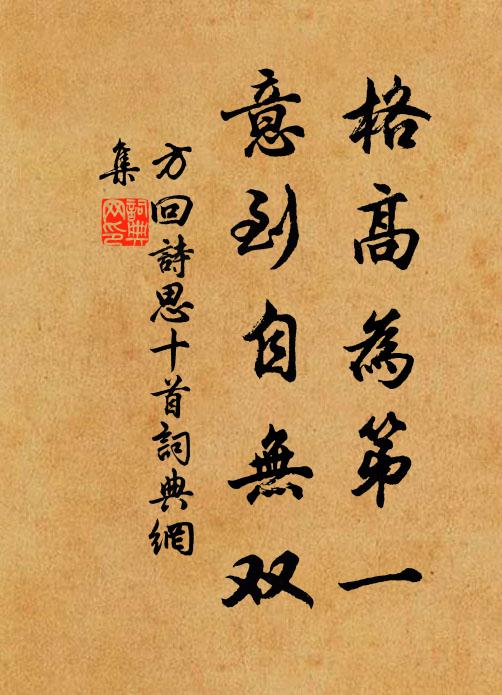 格高為第一
意到自無双
方回詩思十首詞典網
集
詞典
网印